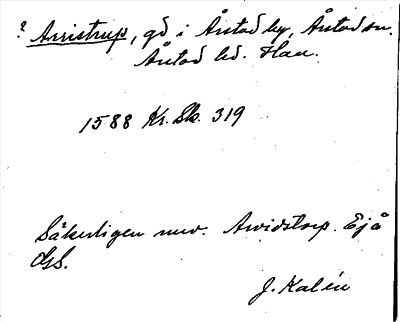 ? Arristrup, gd i Årstad by, Årstad sn.
Årstad hd. Hall.
1588 Kr. Sk. 319
Säkerligen nuv. Arvidstorp. Ej å
GS.
J. Kalén